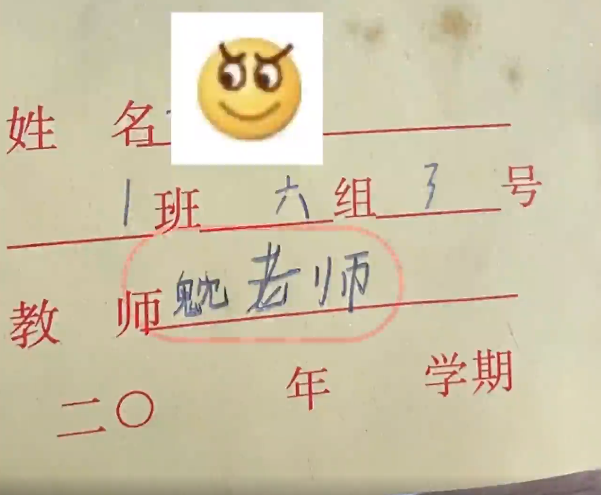 姓 名
1班 六组 3号
教 师 老师
二〇 年 学期